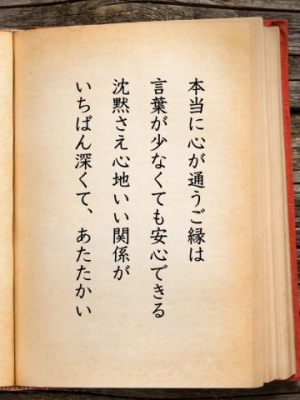 本当に心が通うご縁は
言葉が少なくても安心できる
沈黙さえ心地いい関係が
いちばん深くて、あたたかい